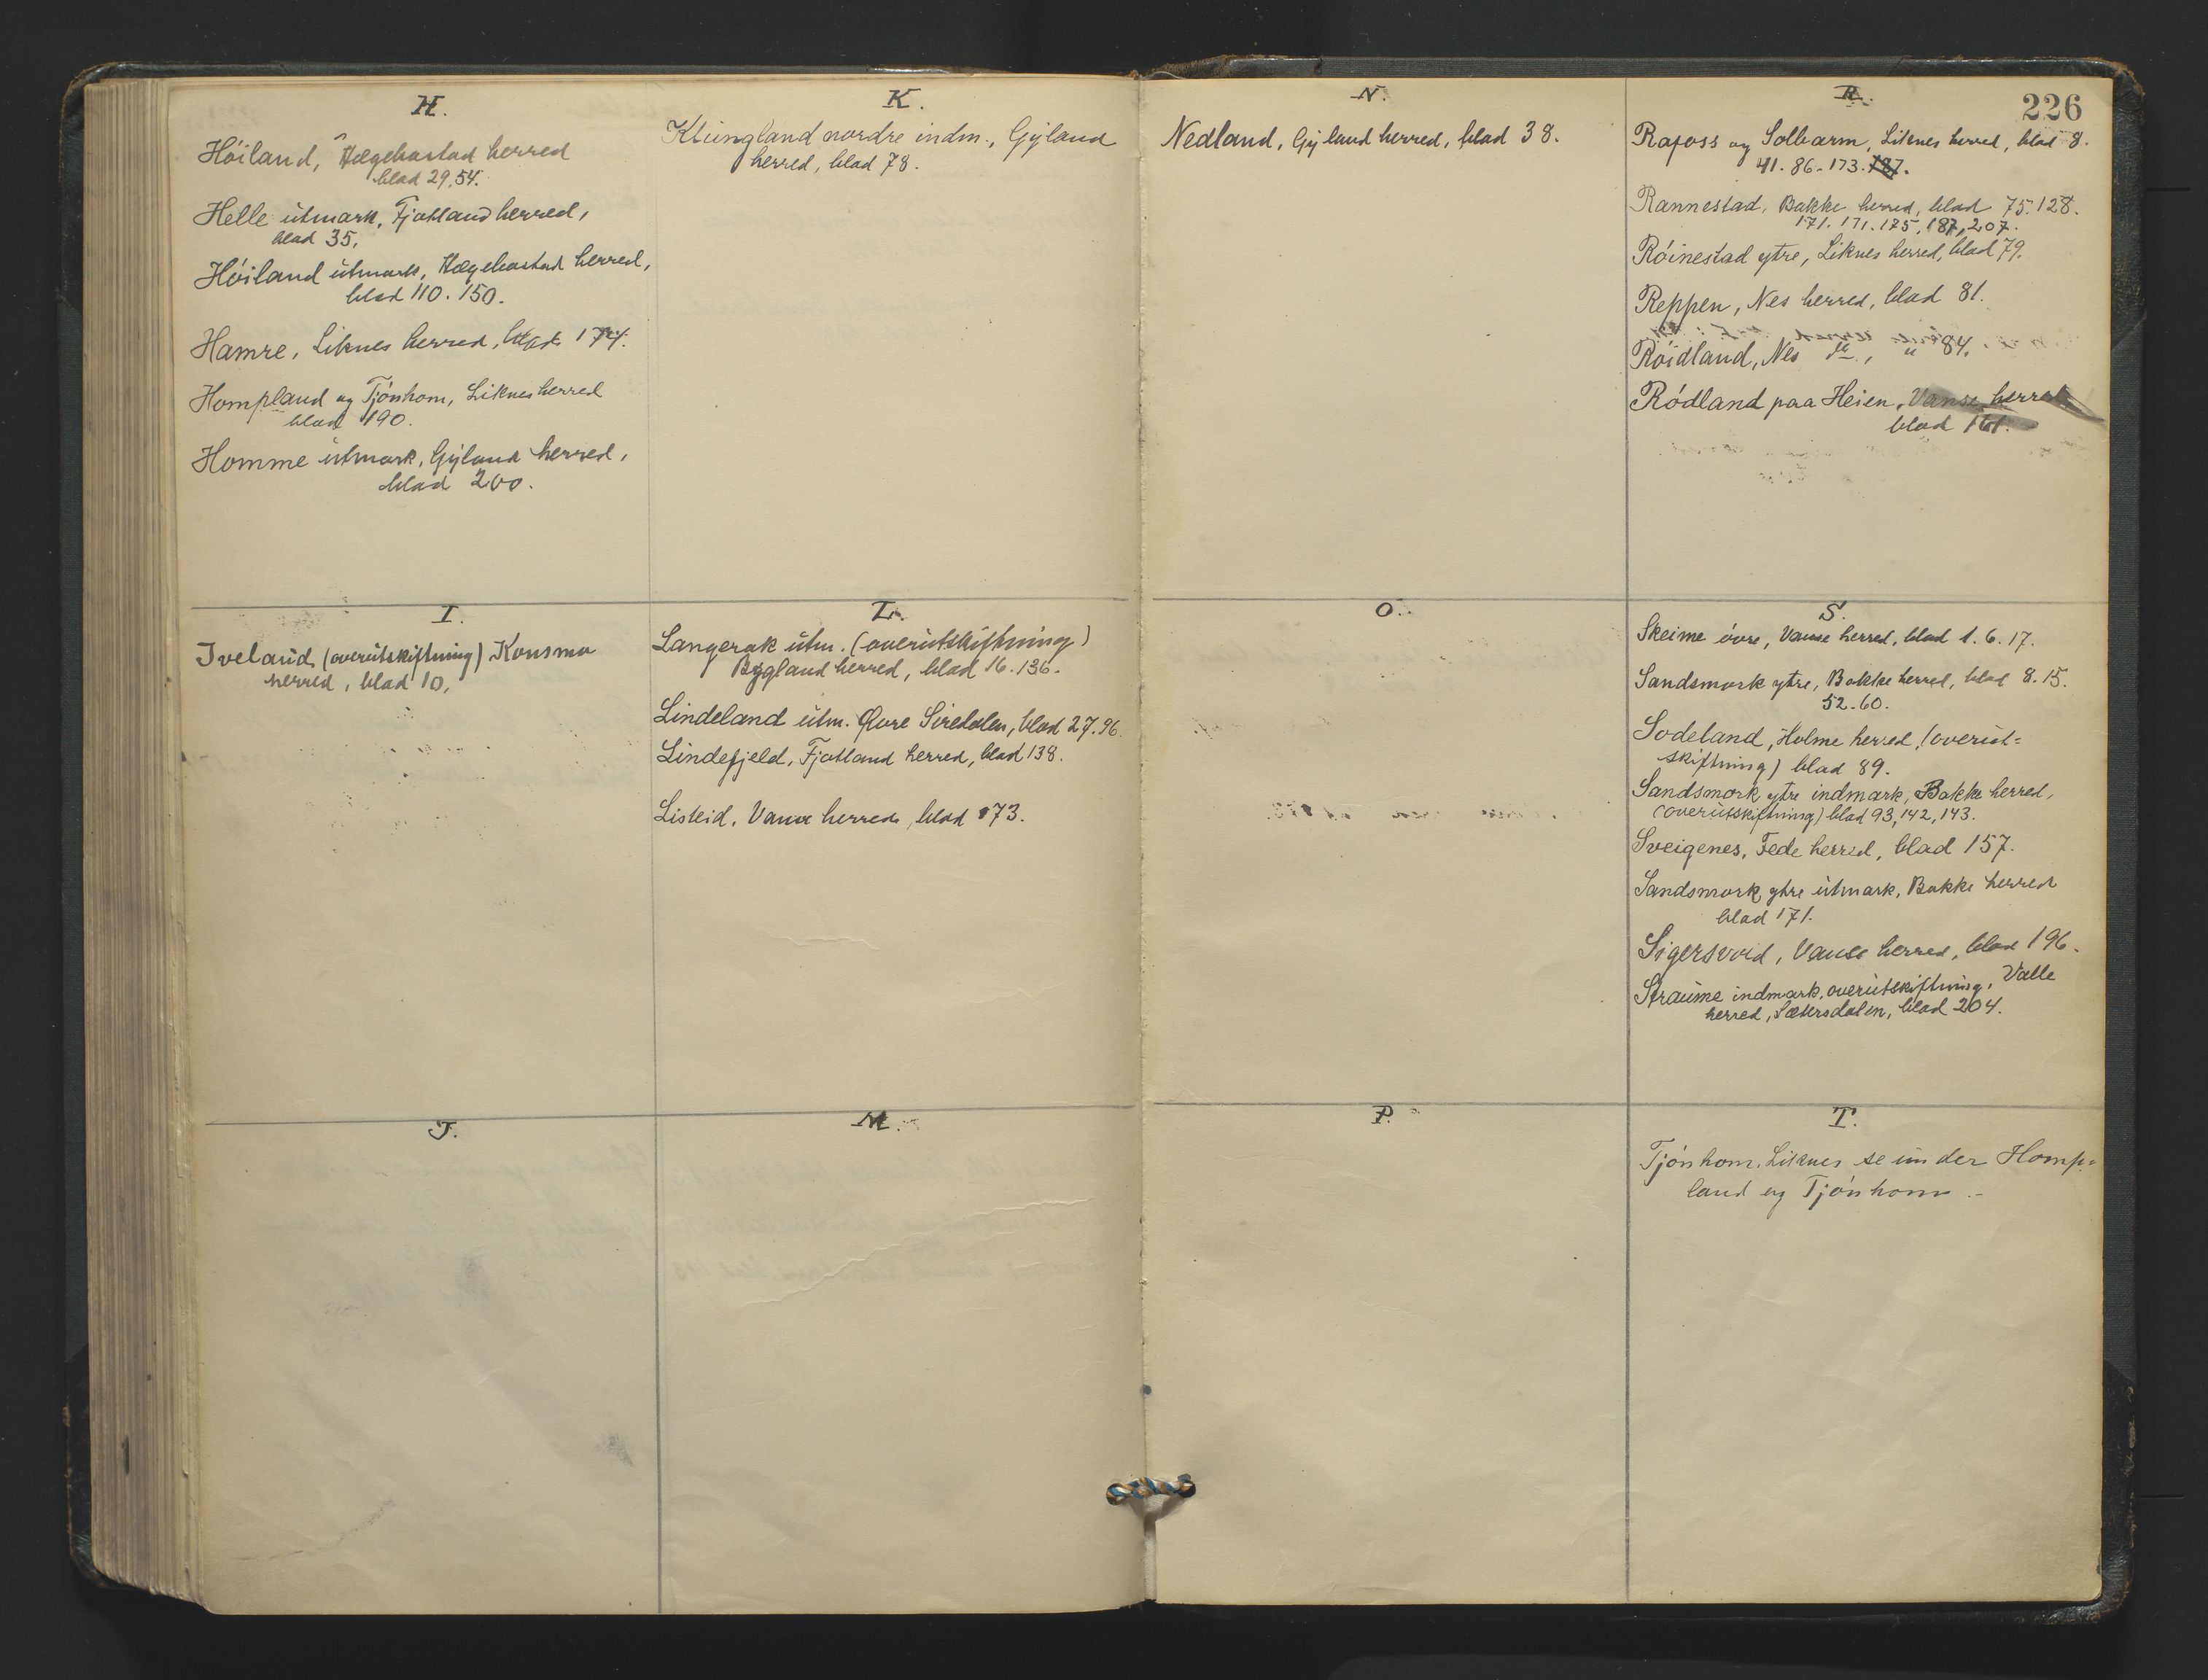 H.
Höiland, Hægebostad herred
blad 29, 54.
Helle utmark, Fjotland herred,
blad 35.
Höiland utmark, Hægebostad herred,
blad 110. 150.
Hamre, Liknes herred, blad 174.
Hompland og Tjönhom, Liknes herred
blad 190.
Homme utmark, Gyland herred,
blad 200.
I.
Iveland (overutskiftning) Konsmo
herred, blad 10.
J.
K.
Klungland nordre indm., Gyland
herred, blad 78.
L.
Langerak utm. (overutskiftning)
Bygland herred, blad 16. 136.
Lindeland utm. Øvre Siredalen, blad 27. 96.
Lindefjeld, Fjotland herred, blad 138.
Listeid, Vanse herred, blad 173.
M.
N.
Nedland, Gyland herred, blad 38.
O.
P.
226
R.
Rafoss og Solbarm, Liknes herred, blad 8.
41. 86. 173. 187.
Rannestad, Bakke herred, blad 75. 128.
171. 171. 175, 187, 207.
Röinestad ytre, Liknes herred, blad 79.
Reppen, Nes herred, blad 81.
Röidland, Nes do, " 84.
Rödland paa Heien, Vanse herred
blad 161.
S.
Skeime övre, Vanse herred, blad 1. 6. 17.
Sandsmork ytre, Bakke herred, blad 8. 15.
52. 60.
Sodeland, Holme herred, (overut=
skiftning) blad 89.
Sandsmork ytre indmark, Bakke herred,
(overutskiftning) blad 93, 142, 143.
Sveigenes, Fede herred, blad 157.
Sandsmork ytre utmark, Bakke herred
blad 171.
Sigersvold, Vanse herred, blad 196.
Straume indmark, overutskiftning, Valle
herred, Sætersdalen, blad 204.
T.
Tjönhom, Liknes se under Homp=
land og Tjönhom.-